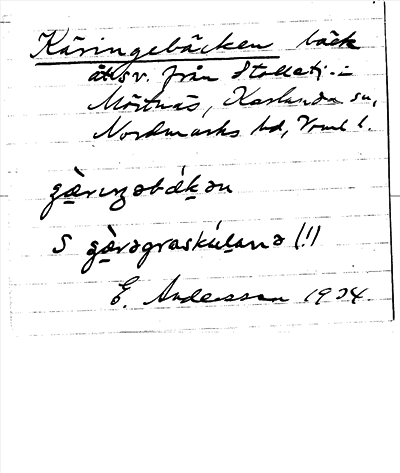 Käringebäcken bäck
åt sv. från Stolletj. i
Mörtnäs, Karlanda sn,
Nordmarks hd, Vrml l.
gæ̀rıŋəbǽkən
S gæ̀rəgraskúlana (!)
E. Andersson 1934.